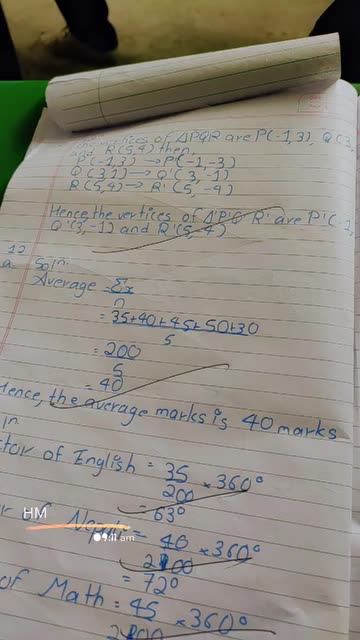 vertices of ΔPQR are P(-1,3), Q(3,
R(5,4) then,
P(-1,3) → P'(-1,-3)
Q(3,1) → Q'(3,-1)
R(5,4) → R'(5,-4)
Hence, the vertices of ΔP'Q'R' are P'(-1,
Q'(3,-1) and R'(5,-4)
12
a. Soln.
Average = Σx
n
= 35+40+45+50+30
5
= 200
5
= 40
Hence, the average marks is 40 marks
in
tor of English = 35 × 360°
200
= 63°
HM
of Nepali = 40 × 360°
200
9:11 am
= 72°
of Math = 45 × 360°
200